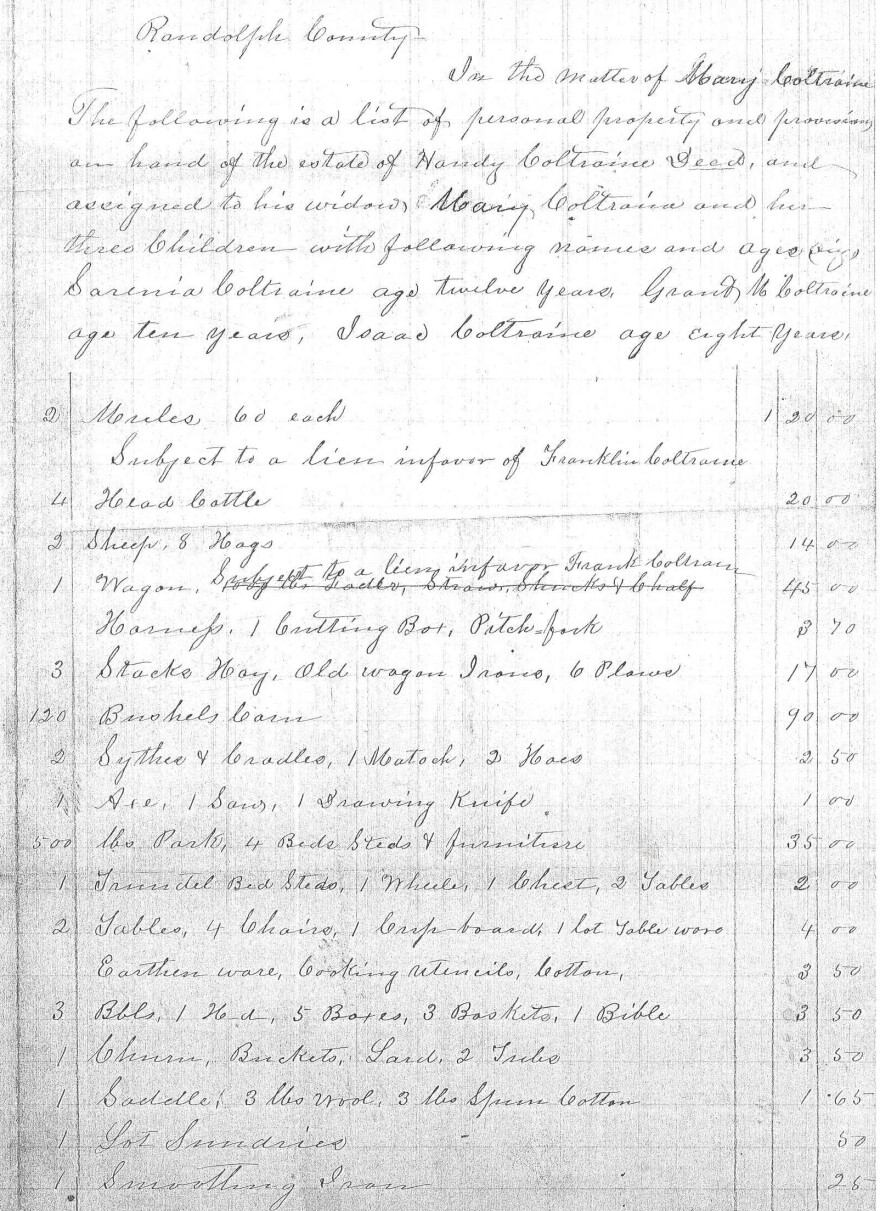 Randolph County
In the matter of Mary Coltraine
The following is a list of personal property and provisions
on hand of the estate of Handy Coltraine Decd, and
assigned to his widow, Mary Coltraine and her
three Children with following names and ages viz,
Sarenia Coltraine age twelve years, Grand M Coltraine
age ten years, Isaac Coltraine age eight years,
2 Mules 60 each 1 20 00
Subject to a lien infavor of Franklin Coltraine
4 Head Cattle 20 00
2 Sheep, 8 Hogs 14 00
Subject to a lien infavor Frank Coltrain
1 Wagon, lbs Fodder, Straw, Shucks & Chaff 45 00
Harness, 1 Cutting Box, Pitch=fork 3 70
3 Stacks Hay, Old wagon Irons, 6 Plows 17 00
120 Bushels Corn 90 00
2 Sythes & Cradles, 1 Matock, 2 Hoes 2 50
1 Axe, 1 Saw, 1 Drawing Knife 1 00
500 lbs Pork, 4 Beds Steds & furniture 35 00
1 Trundel Bed Steds, 1 Wheele, 1 Chest, 2 Tables 2 00
2 Tables, 4 Chairs, 1 Cup-board, 1 lot Table ware 4 00
Earthen ware, Cooking utencils, Cotton, 3 50
3 Bbls, 1 Hd, 5 Boxes, 3 Baskets, 1 Bible 3 50
1 Churn, Buckets, Lard, 2 Tubs 3 50
1 Saddle, 3 lbs Wool, 3 lbs Spun Cotton 1 65
1 Lot Sundries 50
1 Smoothing Iron 25